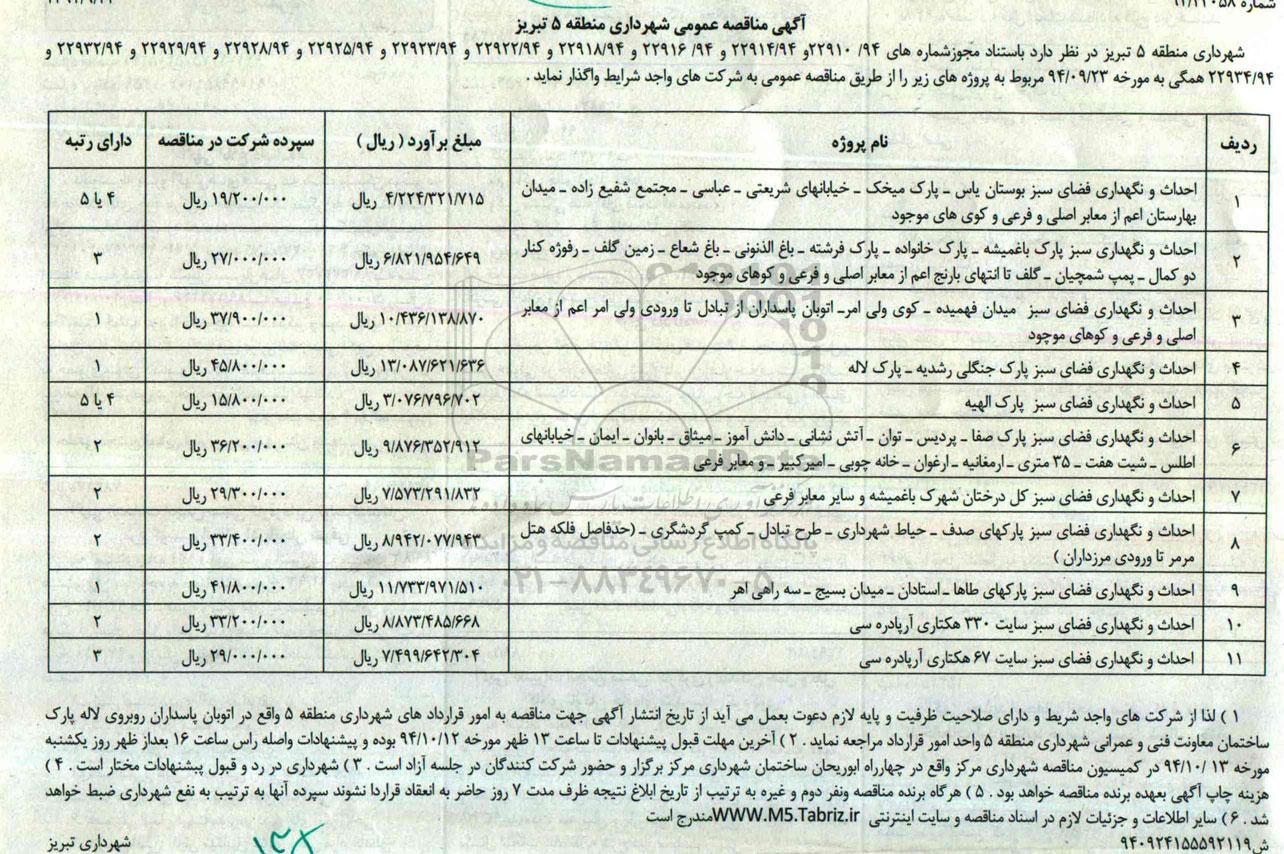 شماره
آگهی مناقصه عمومی شهرداری منطقه ۵ تبریز
شهرداری منطقه ۵ تبریز در نظر دارد باستناد مجوزشماره های ۹۴/ ۲۲۹۱۰و ۲۲۹۱۴/۹۴ و ۹۴/ ۲۲۹۱۶ و ۲۲۹۱۸/۹۴ و ۲۲۹۲۲/۹۴ و ۲۲۹۲۳/۹۴ و ۲۲۹۲۵/۹۴ و ۲۲۹۲۸/۹۴ و ۲۲۹۲۹/۹۴ و ۲۲۹۳۲/۹۴ و
۲۲۹۳۴/۹۴ همگی به مورخه ۹۴/۰۹/۲۳ مربوط به پروژه های زیر را از طریق مناقصه عمومی به شرکت های واجد شرایط واگذار نماید .
ردیف نام پروژه مبلغ برآورد ( ریال ) سپرده شرکت در مناقصه دارای رتبه
۱ احداث و نگهداری فضای سبز بوستان یاس ـ پارک میخک ـ خیابانهای شریعتی ـ عباسی ـ مجتمع شفیع زاده ـ میدان
بهارستان اعم از معابر اصلی و فرعی و کوی های موجود ۴/۲۲۴/۳۲۱/۷۱۵ ریال ۱۹/۲۰۰/۰۰۰ ریال ۴ یا ۵
۲ احداث و نگهداری سبز پارک باغمیشه ـ پارک خانواده ـ پارک فرشته ـ باغ الذنونی ـ باغ شعاع ـ زمین گلف ـ رفوژه کنار
دو کمال ـ پمپ شمچیان ـ گلف تا انتهای بارنج اعم از معابر اصلی و فرعی و کوهای موجود ۶/۸۲۱/۹۵۴/۶۴۹ ریال ۲۷/۰۰۰/۰۰۰ ریال ۳
۳ احداث و نگهداری فضای سبز میدان فهمیده ـ کوی ولی امرـ اتوبان پاسداران از تبادل تا ورودی ولی امر اعم از معابر
اصلی و فرعی و کوهای موجود ۱۰/۴۳۶/۱۳۸/۸۷۰ ریال ۳۷/۹۰۰/۰۰۰ ریال ۱
۴ احداث و نگهداری فضای سبز پارک جنگلی رشدیه ـ پارک لاله ۱۳/۰۸۷/۶۲۱/۶۳۶ ریال ۴۵/۸۰۰/۰۰۰ ریال ۱
۵ احداث و نگهداری فضای سبز پارک الهیه ۳/۰۷۶/۷۹۶/۷۰۲ ریال ۱۵/۸۰۰/۰۰۰ ریال ۴ یا ۵
۶ احداث و نگهداری فضای سبز پارک صفا ـ پردیس ـ توان ـ آتش نشانی ـ دانش آموز ـ میثاق ـ بانوان ـ ایمان ـ خیابانهای
اطلس ـ شیت هفت ـ ۳۵ متری ـ ارمغانیه ـ ارغوان ـ خانه چوبی ـ امیرکبیر ـ و معابر فرعی ۹/۸۷۶/۳۵۲/۹۱۲ ریال ۳۶/۲۰۰/۰۰۰ ریال ۲
۷ احداث و نگهداری فضای سبز کل درختان شهرک باغمیشه و سایر معابر فرعی ۷/۵۷۳/۲۹۱/۸۳۲ ریال ۲۹/۳۰۰/۰۰۰ ریال ۲
۸ احداث و نگهداری فضای سبز پارکهای صدف ـ حیاط شهرداری ـ طرح تبادل ـ کمپ گردشگری ـ (حدفاصل فلکه هتل
مرمر تا ورودی مرزداران ) ۸/۹۴۲/۰۷۷/۹۴۳ ریال ۳۳/۴۰۰/۰۰۰ ریال ۲
۹ احداث و نگهداری فضای سبز پارکهای طاها ـ استادان ـ میدان بسیج ـ سه راهی اهر ۱۱/۷۳۳/۹۷۱/۵۱۰ ریال ۴۱/۸۰۰/۰۰۰ ریال ۱
۱۰ احداث و نگهداری فضای سبز سایت ۳۳۰ هکتاری آرپادره سی ۸/۸۷۳/۴۸۵/۶۶۸ ریال ۳۳/۲۰۰/۰۰۰ ریال ۲
۱۱ احداث و نگهداری فضای سبز سایت ۶۷ هکتاری آرپادره سی ۷/۴۹۹/۶۴۲/۳۰۴ ریال ۲۹/۰۰۰/۰۰۰ ریال ۳
ParsNamadData
پایگاه اطلاع رسانی مناقصه و مزایده
۰۲۱-۸۸۳۴۹۶۷۰-۵
۱ ) لذا از شرکت های واجد شریط و دارای صلاحیت ظرفیت و پایه لازم دعوت بعمل می آید از تاریخ انتشار آگهی جهت مناقصه به امور قرارداد های شهرداری منطقه ۵ واقع در اتوبان پاسداران روبروی لاله پارک
ساختمان معاونت فنی و عمرانی شهرداری منطقه ۵ واحد امور قرارداد مراجعه نماید . ۲ ) آخرین مهلت قبول پیشنهادات تا ساعت ۱۳ ظهر مورخه ۹۴/۱۰/۱۲ بوده و پیشنهادات واصله راس ساعت ۱۶ بعداز ظهر روز یکشنبه
مورخه ۱۳ /۹۴/۱۰ در کمیسیون مناقصه شهرداری مرکز واقع در چهارراه ابوریحان ساختمان شهرداری مرکز برگزار و حضور شرکت کنندگان در جلسه آزاد است . ۳ ) شهرداری در رد و قبول پیشنهادات مختار است . ۴ )
هزینه چاپ آگهی بعهده برنده مناقصه خواهد بود . ۵ ) هرگاه برنده مناقصه ونفر دوم و غیره به ترتیب از تاریخ ابلاغ نتیجه ظرف مدت ۷ روز حاضر به انعقاد قراردا نشوند سپرده آنها به ترتیب به نفع شهرداری ضبط خواهد
شد . ۶ ) سایر اطلاعات و جزئیات لازم در اسناد مناقصه و سایت اینترنتی WWW.M5.Tabriz.irمندرج است
ش۹۴۰۹۲۴۱۵۵۵۹۲۱۱۹ شهرداری تبریز